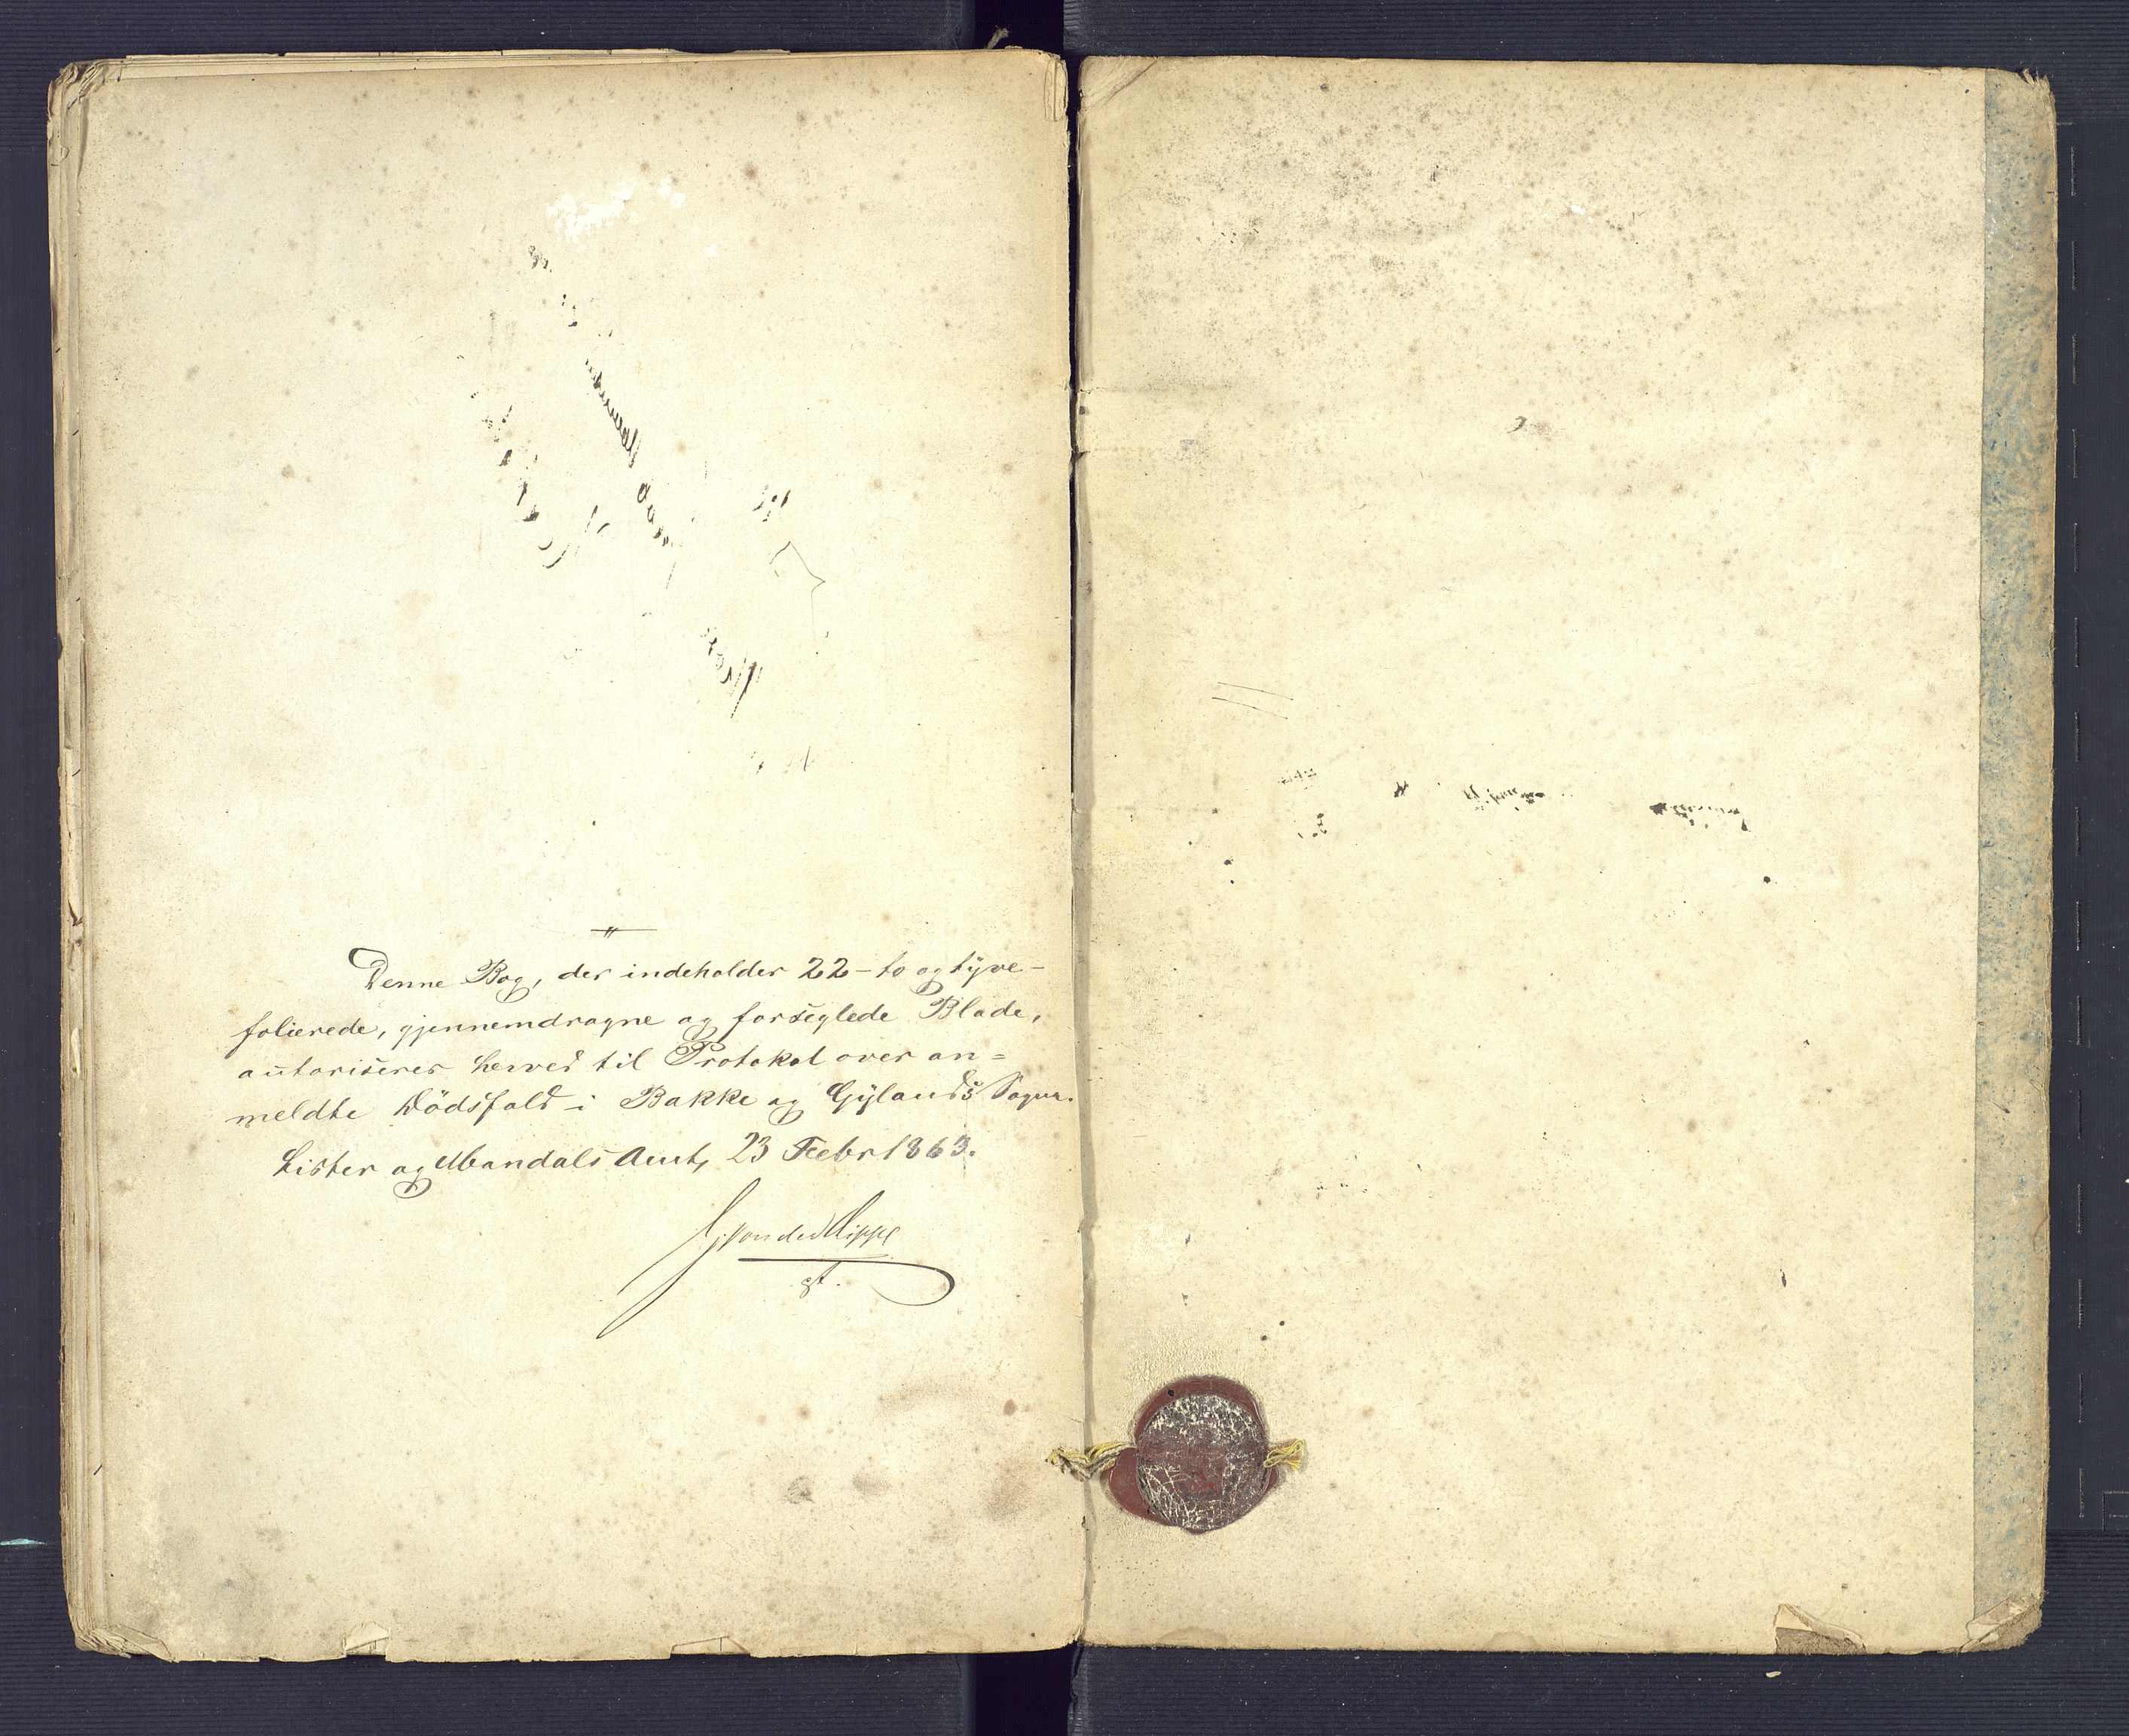 Denne Bog, der indeholder 22 - to og tyve -
folierede, gjennemdragne og forseglede Blade,
autoriseres herved til Protokol over an=
meldte Dödsfald i Bakke og Gylands Sogne.
Lister og Mandals Amt, 23 Febr 1863.
J. von der Lippe